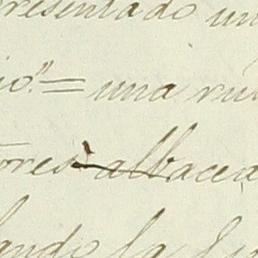 presentado un
io" = una
tores albacea
ando la